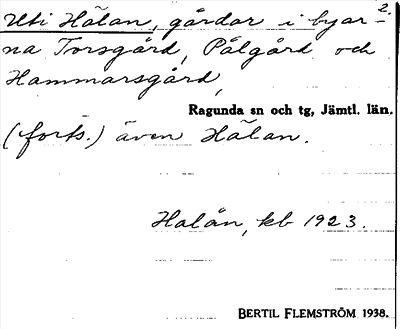 2.
Uti Hålan, gårdar i byar-
na Torsgård, Pålgård och
Hammarsgård,
Ragunda sn och tg, Jämtl. län.
(forts.) även Hålan.
Halån, kb 1923.
BERTIL FLEMSTRÖM 1938.